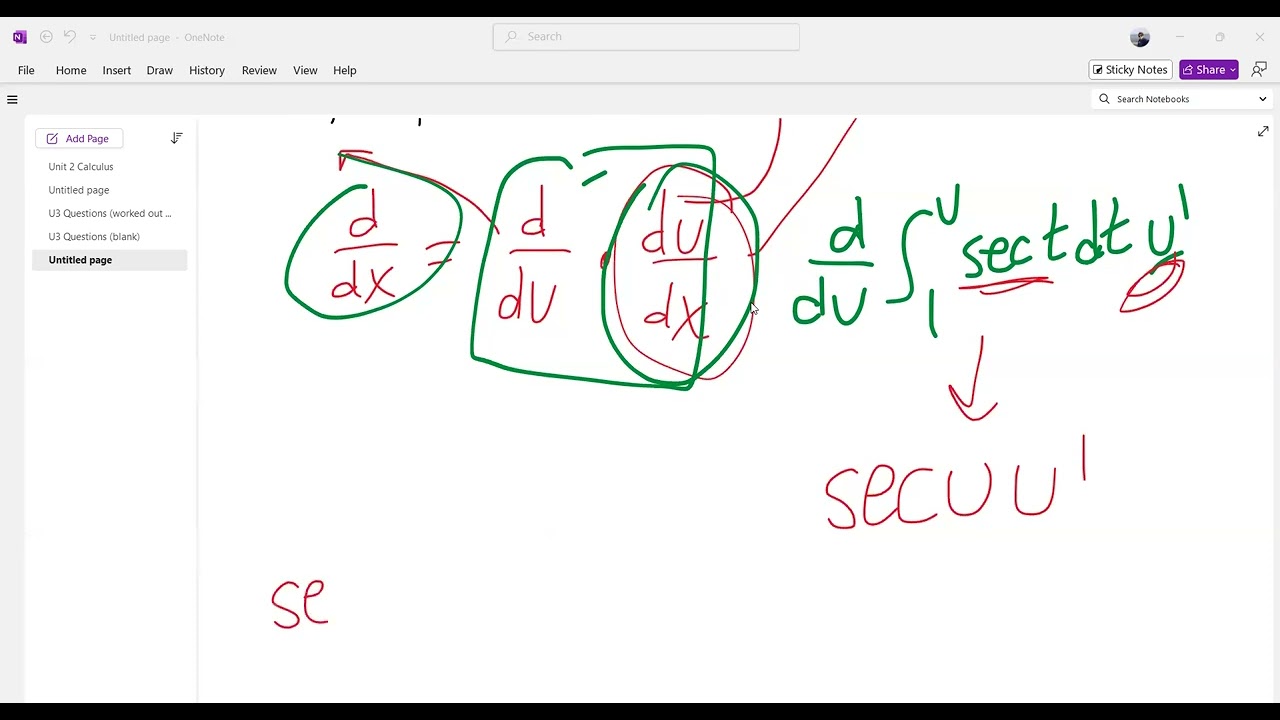 Untitled page - OneNote
Search
File Home Insert Draw History Review View Help
Sticky Notes
Share
Search Notebooks
Add Page
Unit 2 Calculus
Untitled page
U3 Questions (worked out ...
U3 Questions (blank)
Untitled page
d/dx = d/du · du/dx
d/du ∫₁ᵘ sec t dt u'
sec u u'
se